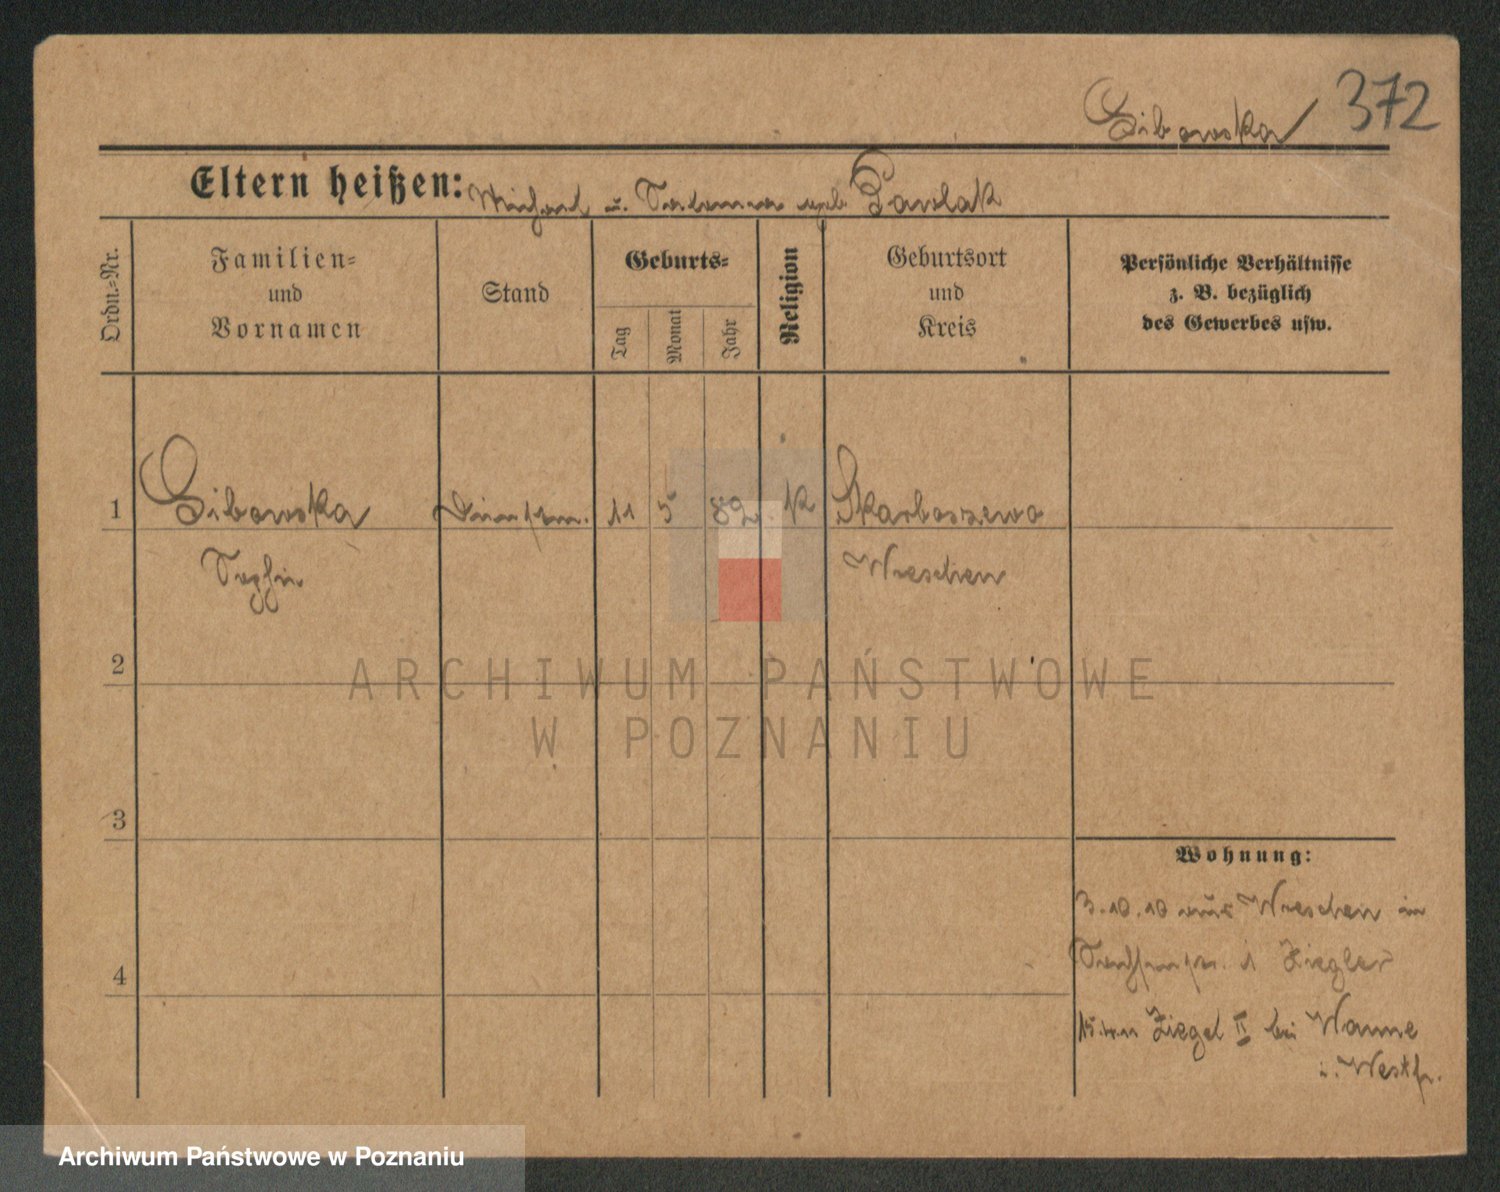 Cibowska 372
Eltern heißen: Michael u. Salomea geb. Pawlak
Ordn.-Nr.
Familien-
und
Vornamen
Stand
Geburts-
Tag
Monat
Jahr
Religion
Geburtsort
und
Kreis
Persönliche Verhältnisse
z. B. bezüglich
des Gewerbes usw.
1 Cibowska 11 5 89 K Skarboszewo
Sophie Wreschen
2
3
4
Wohnung:
3.10.10 aus Wreschen in
1 Ziegler
15.4.11 Ziegel II bei Wanne
i. Westf.
ARCHIWUM PAŃSTWOWE
W POZNANIU
Archiwum Państwowe w Poznaniu